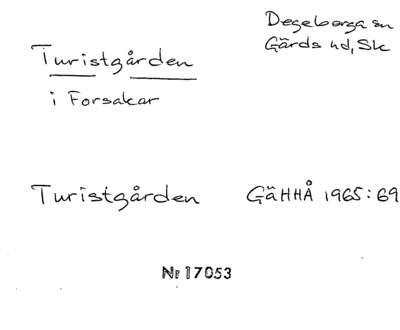 Degeberga sn
Gärds hd, Sk
Turistgården
i Forsakar
Turistgården GäHHÅ 1965:69
Nr 17053